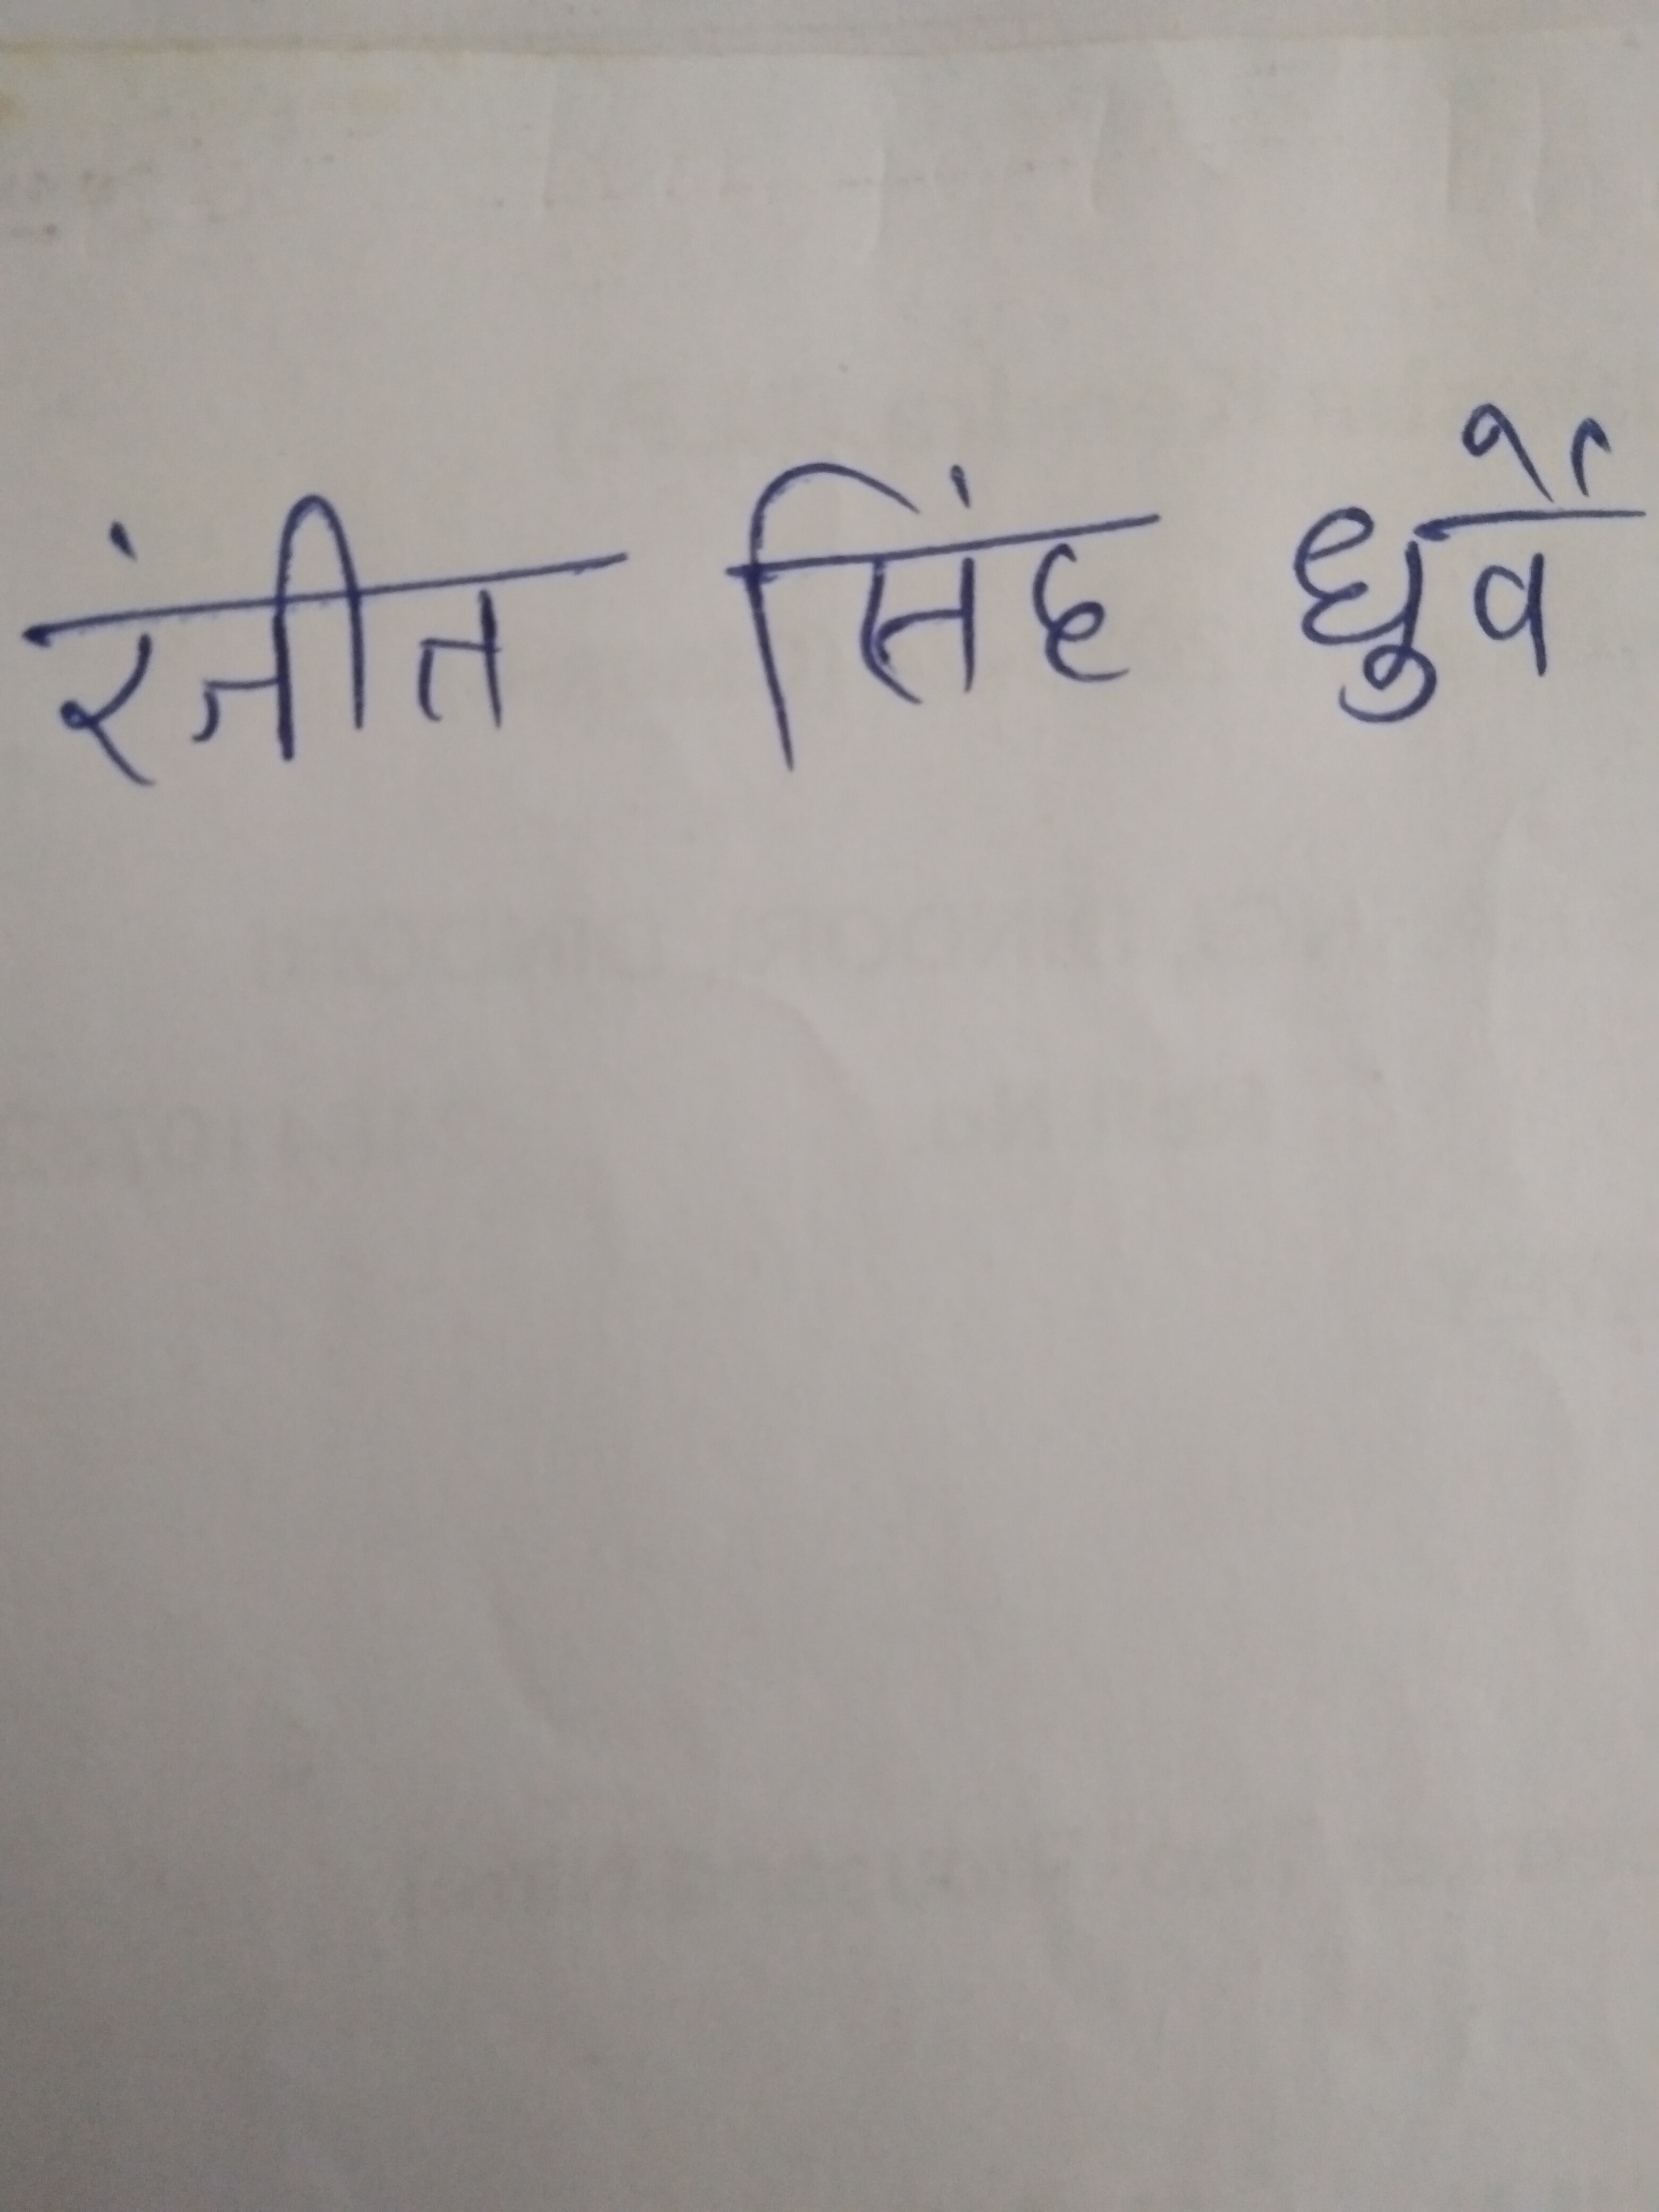 रंजीत सिंह धुर्वे